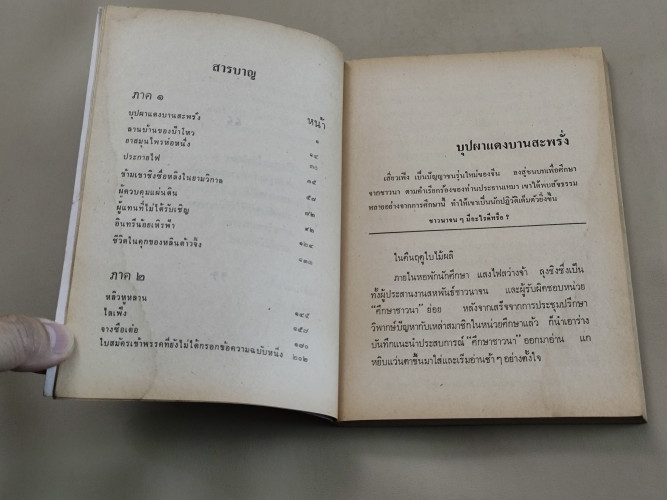 สารบาญ
ภาค ๑
หน้า
บุปผาแดงบานสะพรั่ง ๑
ลานบ้านของป้าไหว
ยาสมุนไพรห่อหนึ่ง ๑๔
ประกายไฟ
ข้ามเขาชิงซื่อหลิงในยามวิกาล ๓๕
ผู้ควบคุมแผ่นดิน ๕๘
ผู้แทนที่ไม่ได้รับเชิญ ๗๒
อินทรีน้อยเหิรฟ้า ๙๒
ชีวิตในคุกของหลินต้าวจิ้ง
ภาค ๒
หลิวหูหลาน ๑๔๕
ไลเพ็ง ๑๕๗
จางซือเต๋อ ๑๗๐
ใบสมัครเข้าพรรคที่ยังไม่ได้กรอกข้อความฉบับหนึ่ง ๒๐๒
บุปผาแดงบานสะพรั่ง
เสี่ยวเพิง เป็นปัญญาชนรุ่นใหม่ของจีน ลงสู่ชนบทเพื่อศึกษา
จากชาวนา ตามคำเรียกร้องของท่านประธานเหมา เขาได้พบสัจธรรม
หลายอย่างจากการศึกษานี้ ทำให้เขาเป็นนักปฏิวัติเต็มตัวยิ่งขึ้น
ชาวนาจน ๆ มีอะไรดีหรือ ?
ในคืนฤดูใบไม้ผลิ
ภายในหอพักนักศึกษา แสงไฟสว่างจ้า ลุงชิงซึ่งเป็น
ทั้งผู้ประสานงานสหพันธ์ชาวนาจน และผู้รับผิดชอบหน่วย
“ศึกษาชาวนา” ย่อย หลังจากเสร็จจากการประชุมปรึกษา
วิพากษ์ปัญหากับเหล่าสมาชิกในหน่วยศึกษาแล้ว ก็นำเอาร่าง
บันทึกแนะนำประสบการณ์ “ศึกษาชาวนา” ออกมาอ่าน แก
หยิบแว่นตาขึ้นมาใส่และเริ่มอ่านช้า ๆ อย่างตั้งใจ